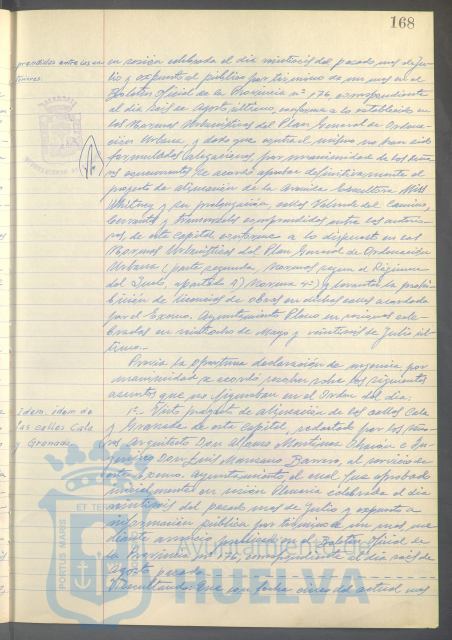 168
prendidas entre las an
teriores.
en sesión celebrada el día veintiseis del pasado mes de Ju-
lio y expuesto al público por término de un mes en el
Boletín Oficial de la Provincia nº 176, correspondiente
al día seis de Agosto último, conforme a lo establecido en
las Normas Urbanísticas del Plan General de Ordena-
ción Urbana, y dado que contra el mismo no han sido
formuladas alegaciones, por unanimidad de los seño-
res concurrentes se acordó aprobar definitivamente el
proyecto de alineación de la Avenida Escultora Miss
Whitney y su prolongación, calles Valverde del Camino,
Cervantes y transversales comprendidas entre las anterio-
res, de esta Capital, conforme a lo dispuesto en las
Normas Urbanísticas del Plan General de Ordenación
Urbana (parte segunda, Normas según el Régimen
del Suelo, apartado A) Norma 4ª) y levantar la prohi-
bición de licencias de obras en dichas calles acordada
por el Excmo. Ayuntamiento Pleno en sesiones cele-
bradas en de Mayo y veintiseis de Julio úl-
timo.
Previa la oportuna declaración de urgencia por
unanimidad se acordó resolver sobre los siguientes
asuntos que no figuraban en el Orden del día:
Idem. idem de
las calles Cala
y Granada
1º.- Visto proyecto de alineación de las calles Cala
y Granada de esta Capital, redactado por los Seño-
res Arquitecto Don Alonso Martínez Chacón e In-
geniero Don Luis Manzano Barrero, al servicio de
este Excmo. Ayuntamiento, el cual fue aprobado
inicialmente en sesión Plenaria celebrada el día
veintiseis del pasado mes de Julio y expuesto a
información pública por término de un mes me
diante anuncio publicado en el Boletín Oficial de
la Provincia nº 176, correspondiente al día seis de
Agosto pasado.
Resultando: Que con fecha cinco del actual mes
PORTUS MARIS
ET TERRAE
Ayuntamiento de
HUELVA